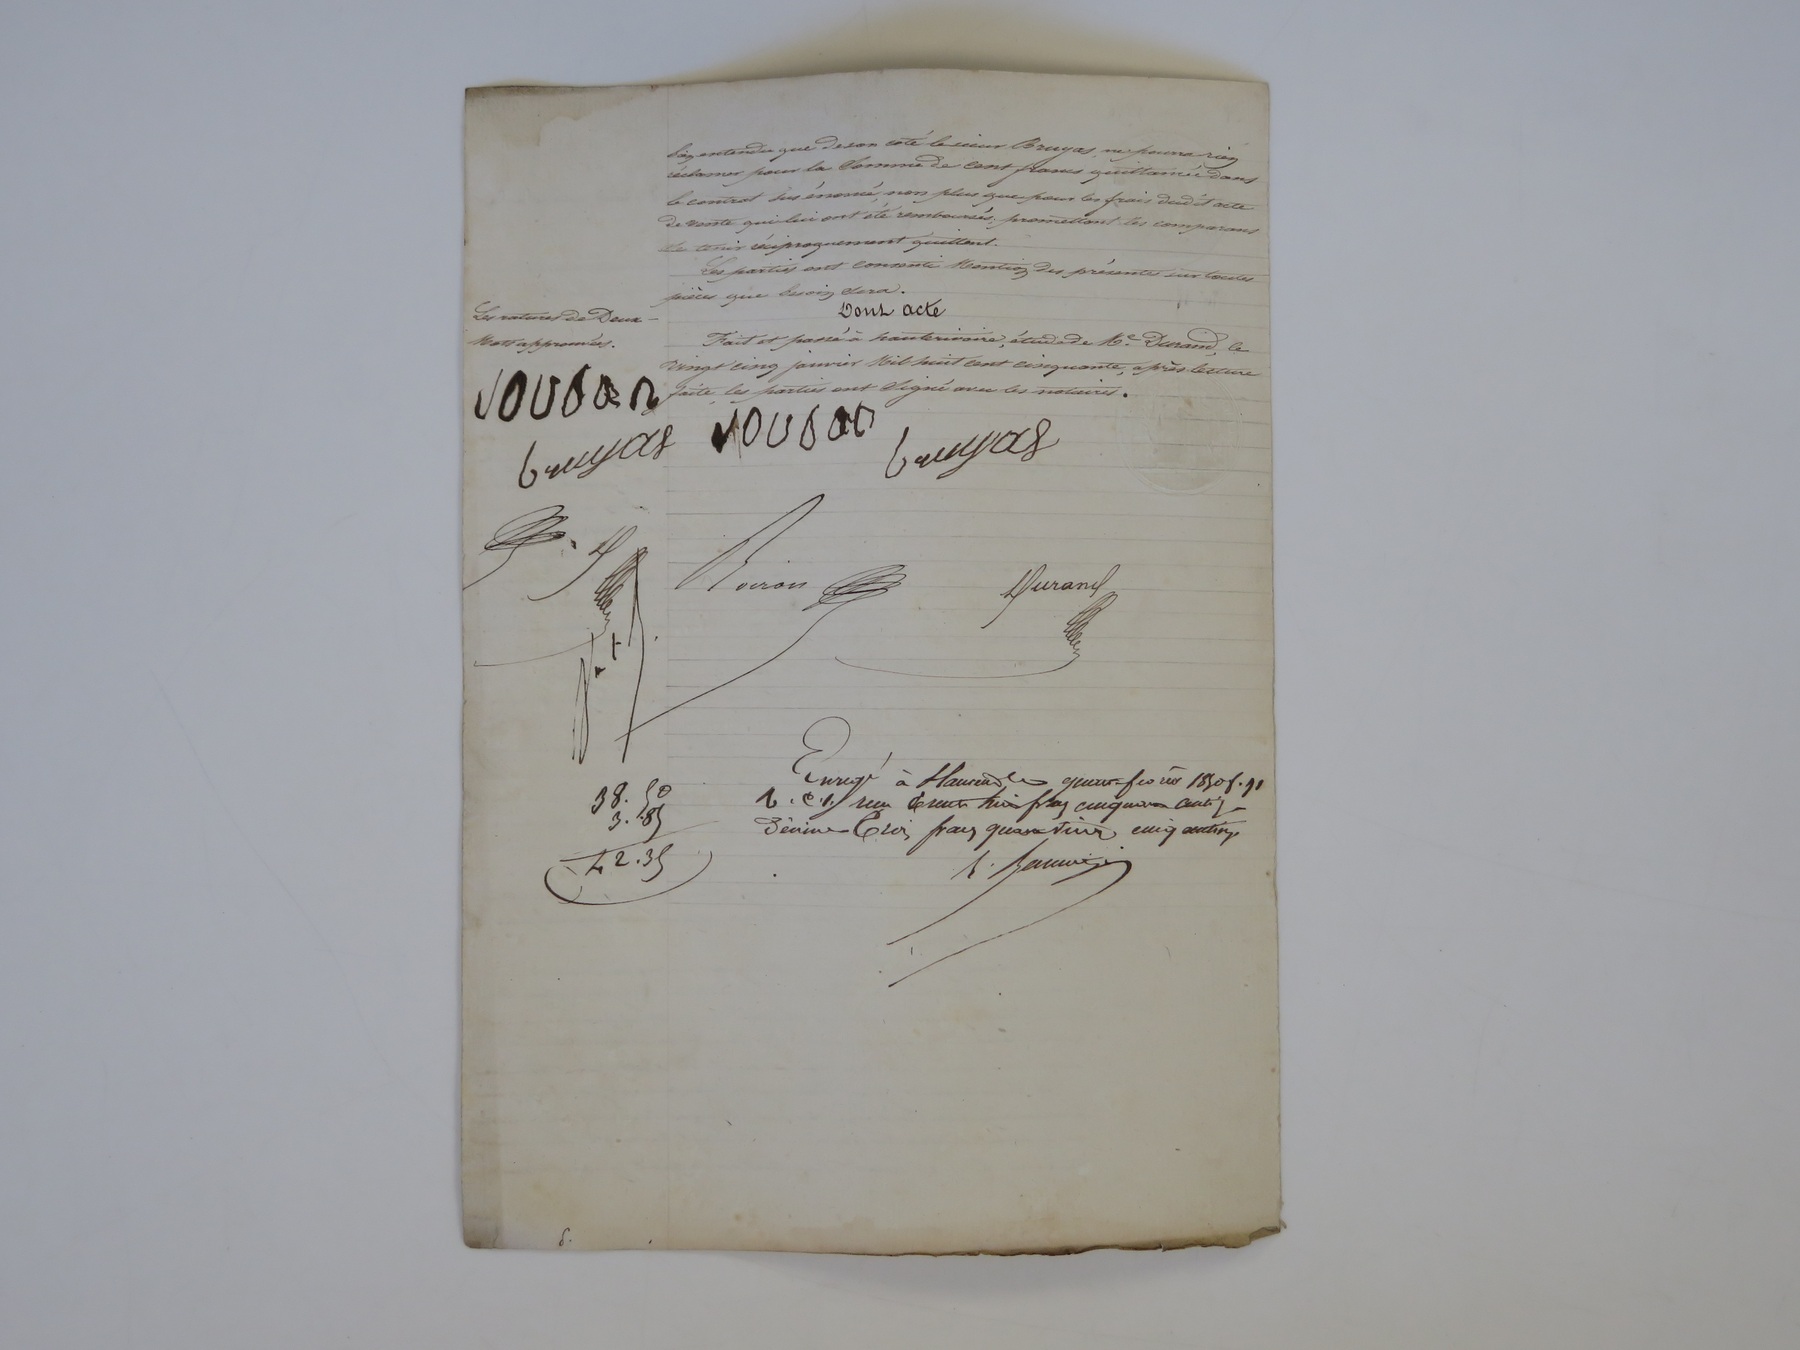 bien entendu que de son coté le sieur Bruyas ne pourra rien
réclamer pour la Somme de cent francs quittancée dans
le contrat sus énoncé, non plus que pour les frais dudit acte
de vente qui lui ont été remboursés, promettant les comparans
se tenir réciproquement quittent.
Les parties ont consenti Mention des présentes sur toutes
pièces que besoin sera.
Dont acte
Fait et passé à hauterivoire, étude de Me. Durand, le
vingt cinq janvier Mil huit cent cinquante, après lecture
faite, les parties ont Signé avec les notaires.
Les ratures de Deux
Mots approuvées.
JOUBAN
bruyas
JOUBAN
bruyas
Durand
Enregé à février 1850 f. 91
R. C. reçu Trente huit francs cinquante
Décime Trois francs quatre vingt cinq
38.50
3.85
42.35
6.